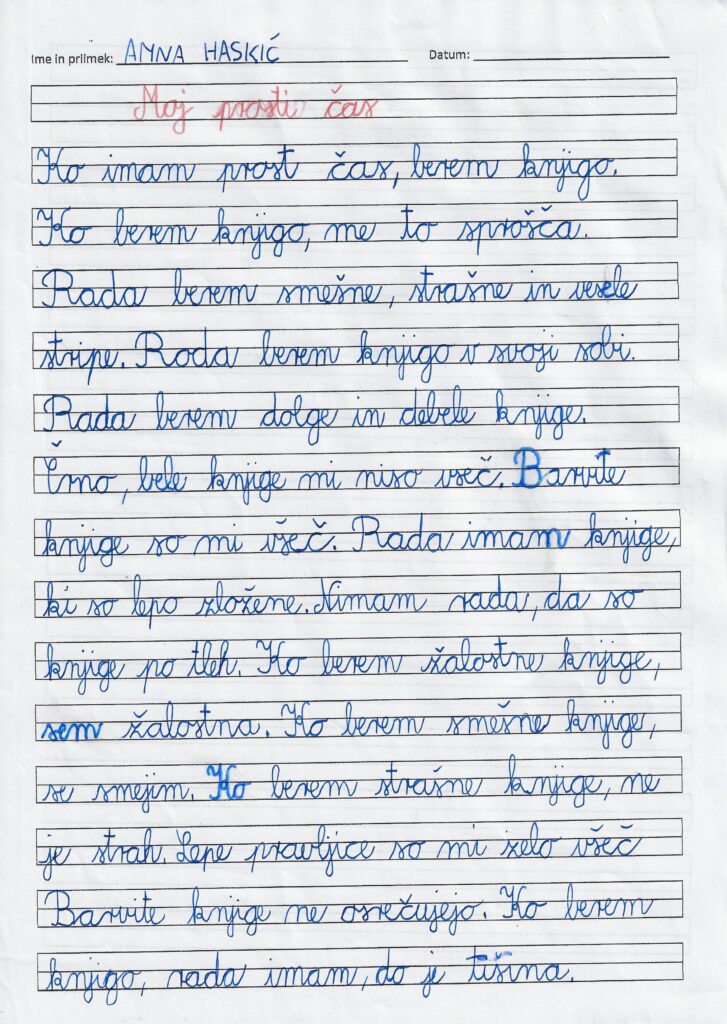 Ime in priimek: AMNA HASKIĆ Datum:
Moj prosti čas
Ko imam prost čas, berem knjigo.
Ko berem knjigo, me to sprošča.
Rada berem smešne, strašne in vesele
stripe. Roda berem knjigo v svoji sobi.
Rada berem dolge in debele knjige.
Črno, bele knjige mi niso všeč. Barvite
knjige so mi všeč. Rada imam knjige,
ki so lepo zložene. Nimam rada, da so
knjige po tleh. Ko berem žalostne knjige,
sem žalostna. Ko berem smešne knjige,
se smejim. Ko berem strašne knjige, me
je strah. Lepe pravljice so mi zelo všeč
Barvite knjige me osrečujejo. Ko berem
knjigo, rada imam, do je tišina.